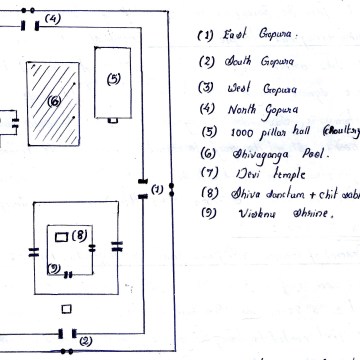 (4)
(5)
(6)
(1)
(8)
(9)
(2)
(1) East Gopura.
(2) South Gopura
(3) West Gopura
(4) North Gopura
(5) 1000 pillar hall (choultry
(6) Shivaganga Pool.
(7) Devi temple
(8) Shiva sanctum + chit sab
(9) Vishnu Shrine.